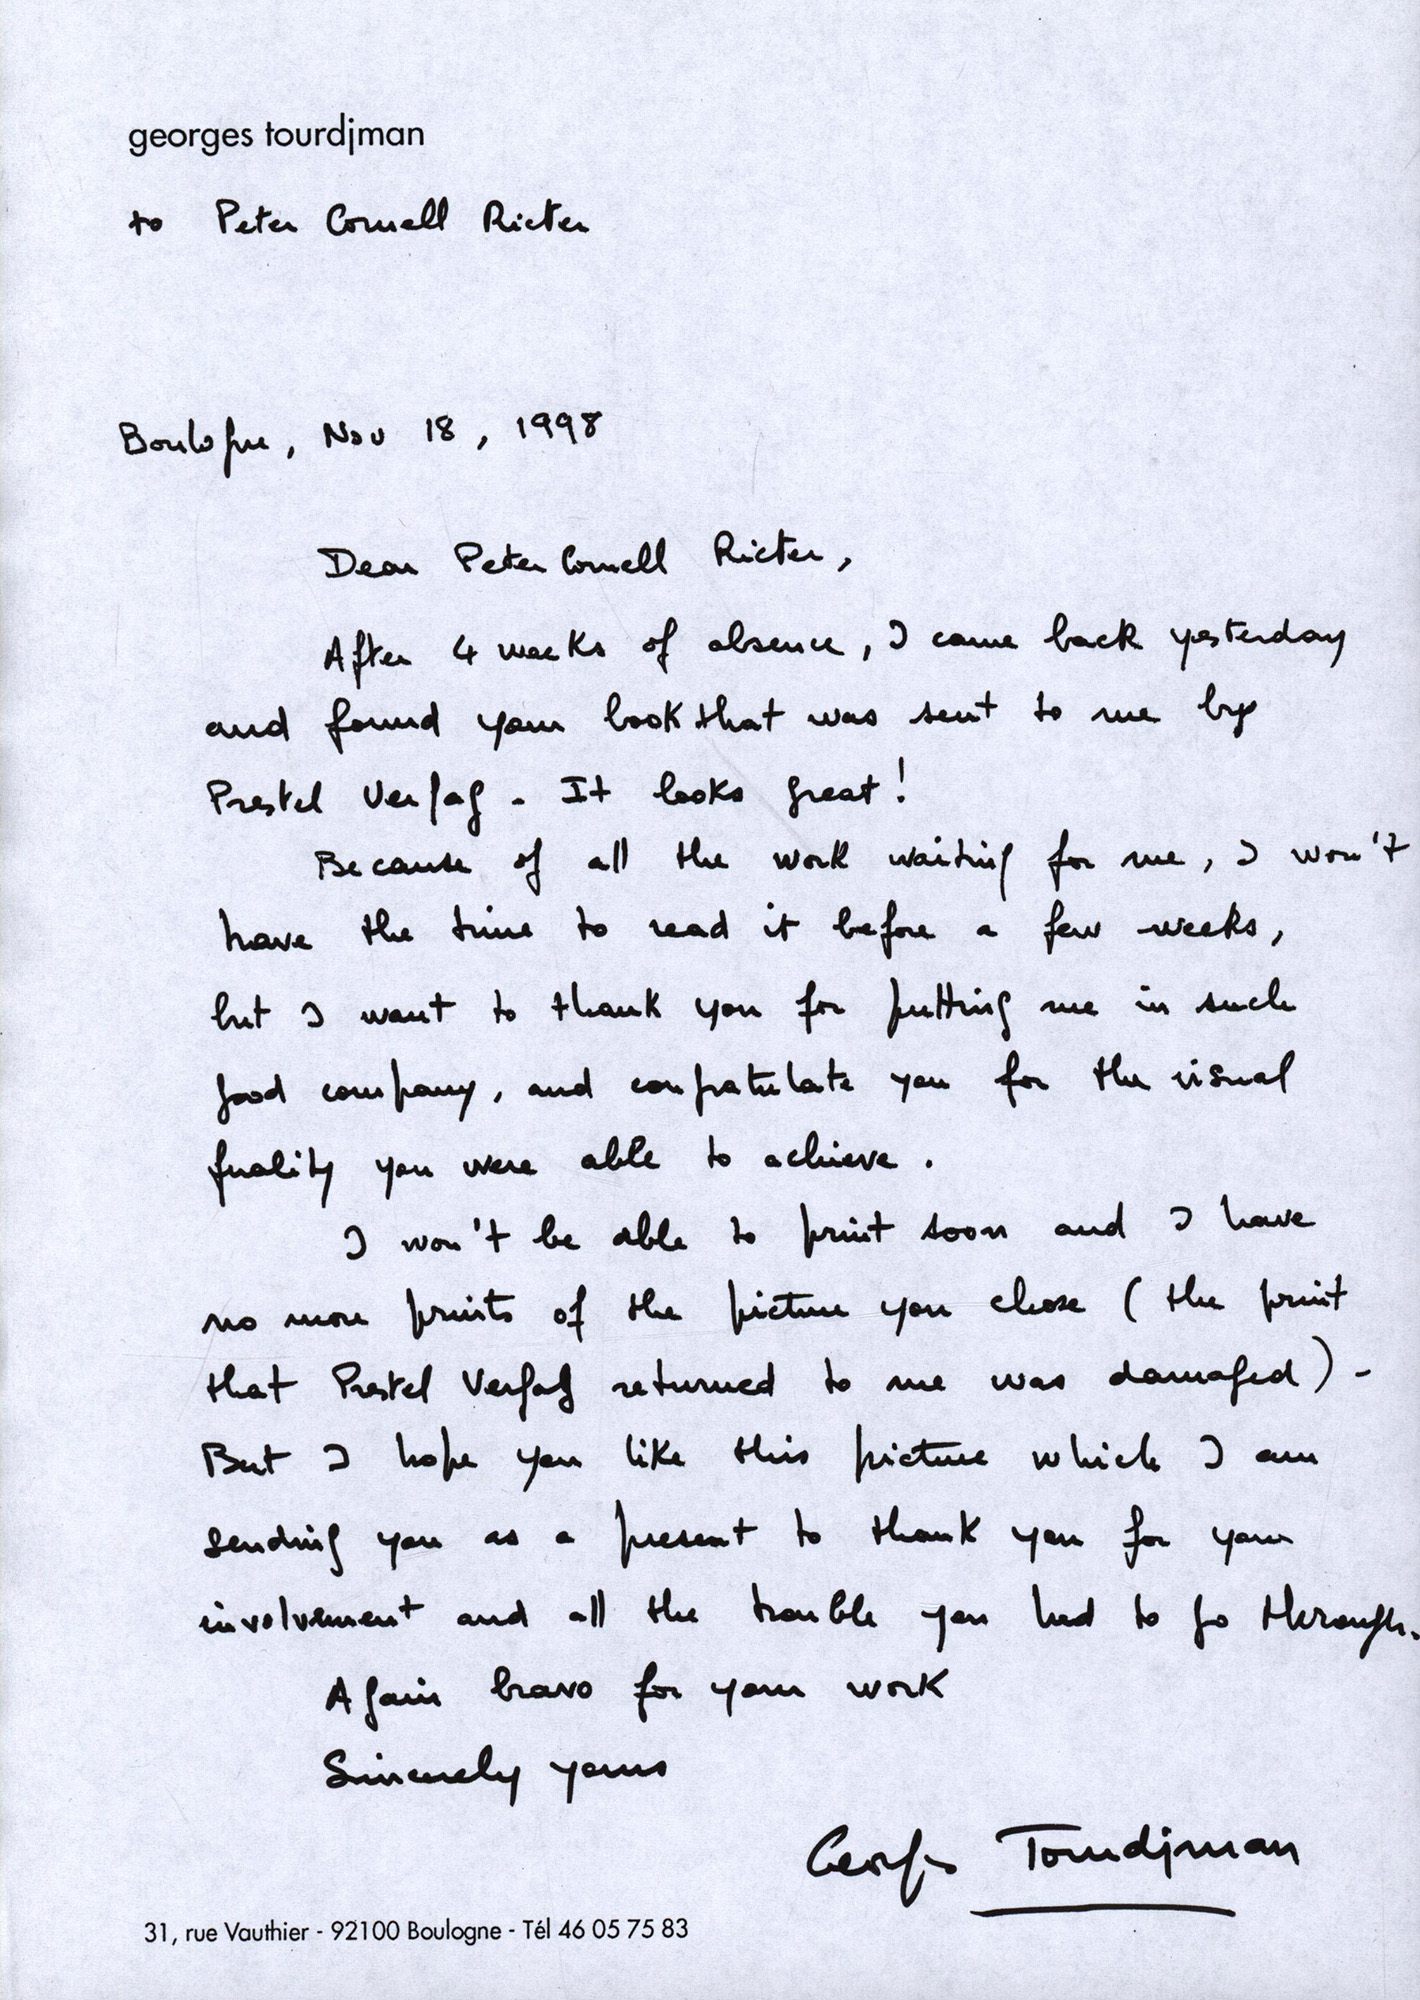 georges tourdjman
to Peter Cornell Ricter
Boulogne, Nov 18, 1998
Dear Peter Cornell Ricter,
After 4 weeks of absence, I came back yesterday
and found your book that was sent to me by
Prestel Verlag. It looks great!
Because of all the work waiting for me, I won't
have the time to read it before a few weeks,
but I want to thank you for putting me in such
good company, and congratulate you for the visual
quality you were able to achieve.
I won't be able to print soon and I have
no more prints of the picture you chose (the print
that Prestel Verlag returned to me was damaged) -
But I hope you like this picture which I am
sending you as a present to thank you for your
involvement and all the trouble you had to go through.
Again bravo for your work
Sincerely yours
Georges Tourdjman
31, rue Vauthier - 92100 Boulogne - Tél 46 05 75 83